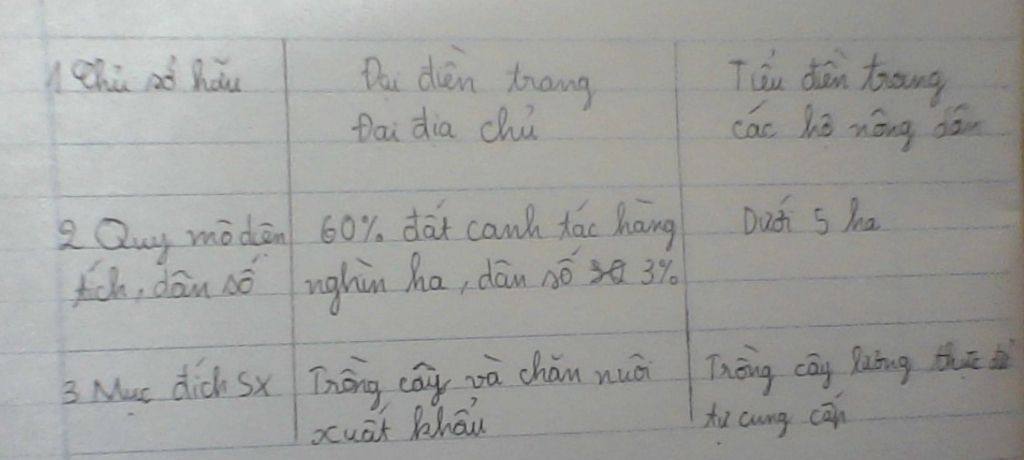 1 Chủ sở hữu
Đại điền trang
Đại địa chủ
Tiểu điền trang
các hộ nông dân
2 Quy mô diện
tích, dân số
60% đất canh tác hàng
nghìn ha, dân số 3%
Dưới 5 ha
3 Mục đích SX
Trồng cây và chăn nuôi
xuất khẩu
Trồng cây lương thực để
tự cung cấp